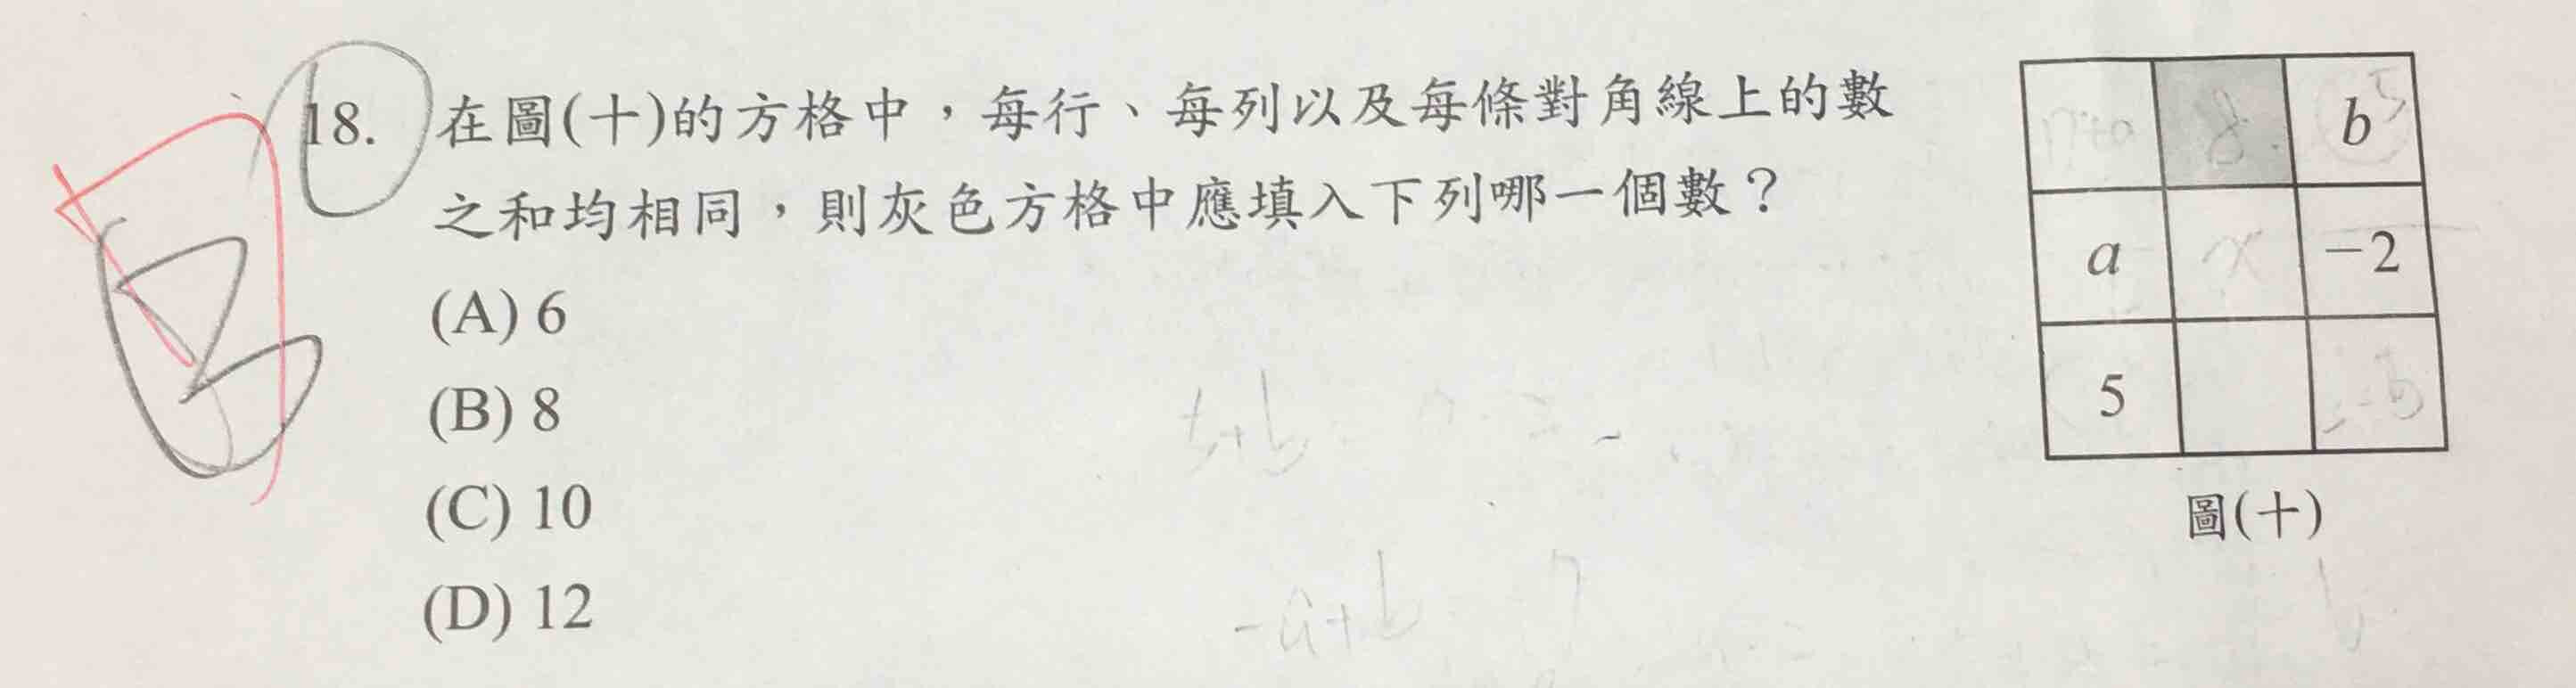 18. 在圖(十)的方格中，每行、每列以及每條對角線上的數
之和均相同，則灰色方格中應填入下列哪一個數？
(A) 6
(B) 8
(C) 10
(D) 12
8 b 5
a x −2
5
圖(十)
5+b
-a+b 7